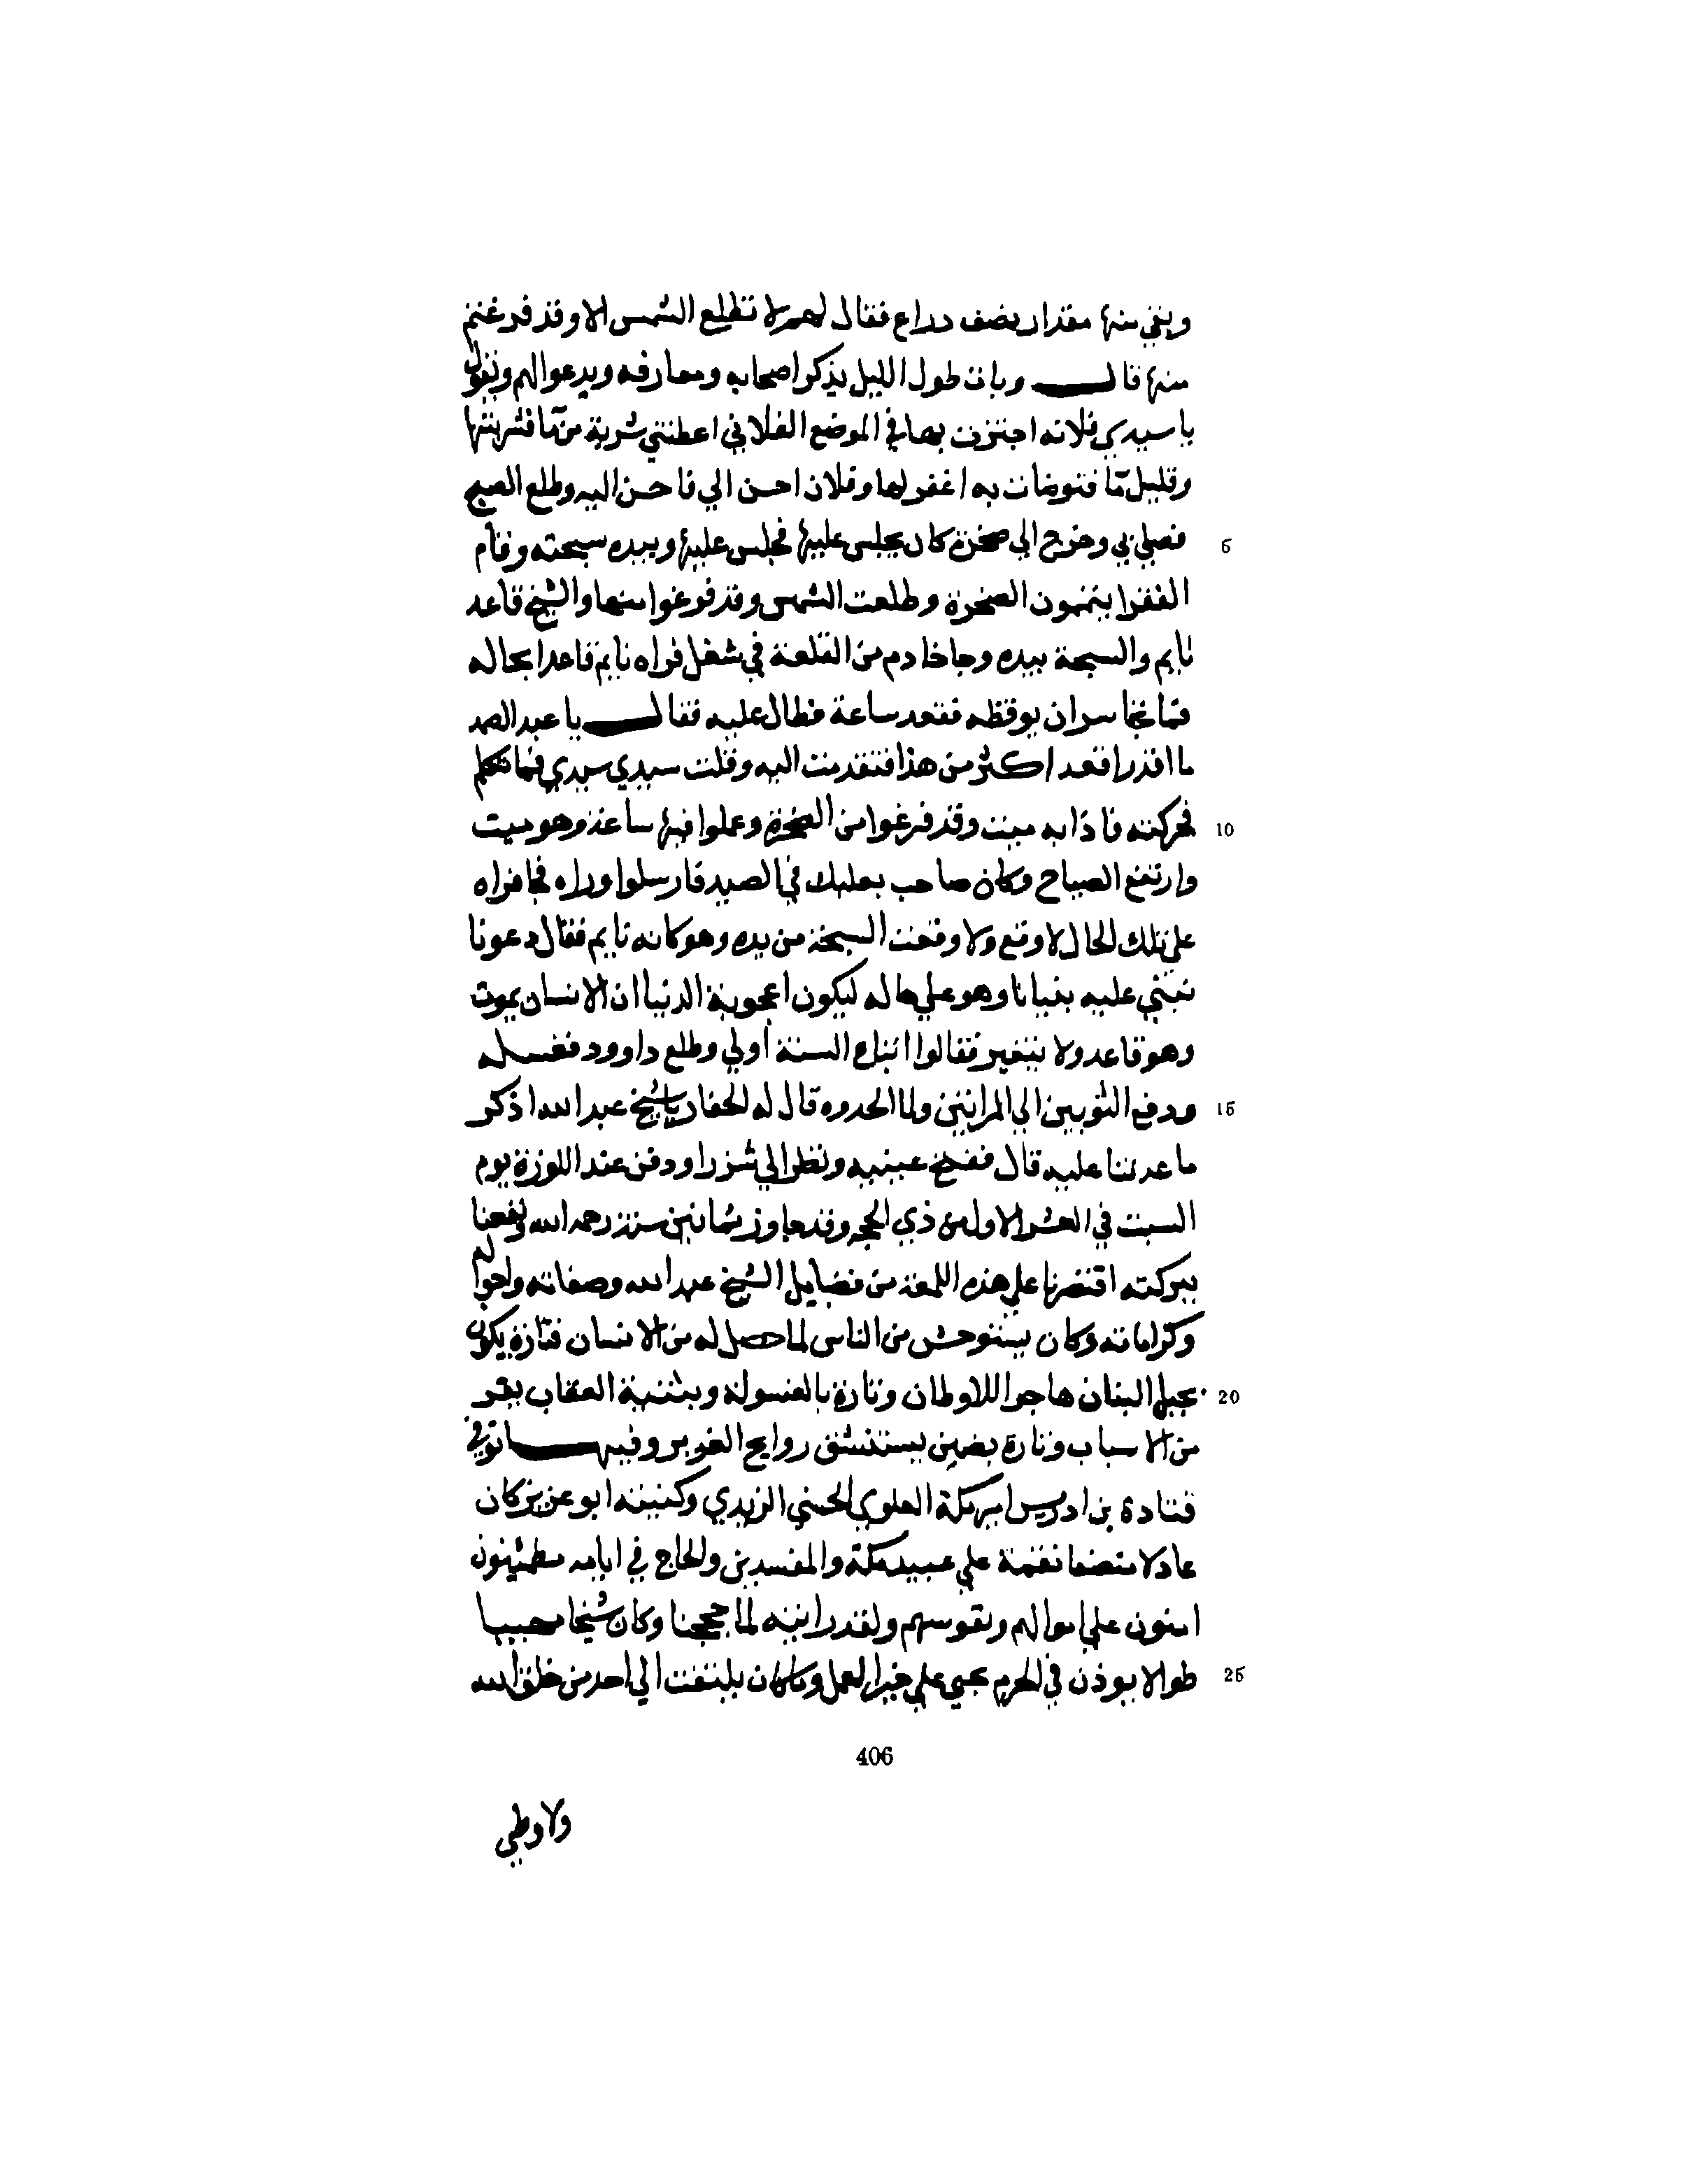 وبقي منها مقدار نصف دراع فقال لهم لا تطلع الشمس الا وقد فرغتم
منها قال وبات طول الليل يذكر اصحابه ومعارفه ويدعوا لهم ويقول
يا سيدي فلانه اجتزت بها في الموضع الفلاني اعطتني شربة من مآ فشربتها
وقليل مآ فتوضات به اغفر لها وفلان احسن الي فاحسن اليه وطلع الصبح
فصلي بي وخرج الي صخرة كان يجلس عليها فجلس عليها وبيده سبحته وقام 5
الفقرا يتممون الصخرة وطلعت الشمس وقد فرغوا منها والشيخ قاعد
نايم والسبحة بيده وجا خادم من القلعة في شغل فراه نايم قاعدا بحاله
فما تجاسر ان يوقظه فقعد ساعة فطال عليه فقال يا عبد الصمد
ما اقدر اقعد اكثر من هذا فتقدمت اليه وقلت سيدي سيدي فما تكلم
فحركته فاذا به ميت وقد فرغوا من الصخرة وعملوا فيها ساعة وهو ميت 10
وارتفع الصياح وكان صاحب بعلبك في الصيد فارسلوا وراه فجا فراه
علي تلك الحال لا وقع ولا وقعت السبحة من يده وهو كانه نايم فقال دعونا
نبني عليه بنيانا وهو علي حاله ليكون اعجوبة الدنيا ان الانسان يموت
وهو قاعد ولا يتغير فقالوا اتباع السنة أولي وطلع داوود فغسله
ودفع الثوبين الي المراتين ولما الحدوه قال له الحفار يا شيخ عبد الله اذكر 15
ما عدتنا عليه قال ففتح عينيه ونظر الي شزرا ودفن عند اللوزة يوم
السبت في العشر الاول من ذي الحجه وقد جاوز ثمانين سنة رحمه الله ونفعنا
ببركته اقتصرنا علي هذه اللمعة من فضايل الشيخ عبد الله وصفاته واحواله
وكراماته وكان يستوحش من الناس لما حصل له من الانسان فتارة يكون
بجبل لبنان هاجرا للاوطان وتارة بالغسولة وبثنية العقاب يفر 20
من الاسباب وتارة يستنشق روايح الغوير وفيها توفي
قتادة بن ادريس امير مكة العلوي الحسني الزيدي وكنيته ابو عزيز كان
عادلا منصفا نقمة علي عبيد مكة والمفسدين والحاج في ايامه مطمئنون
امنون علي اموالهم ونفوسهم ولقد رايته لما حججنا وكان شيخا مهيبا
طوالا يوذن في الحرم بحي علي خير العمل وما كان يلتفت الي احد من خلق الله 25
406
ولا وطي